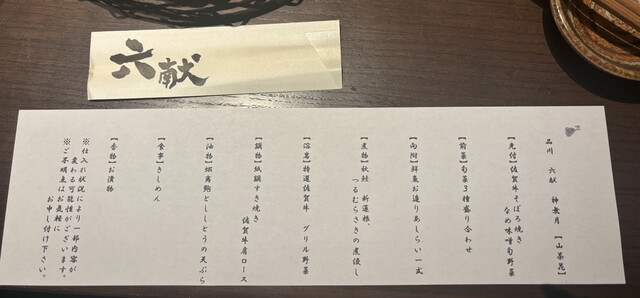 六献
品川 六献 神無月 【山茶花】
【先付】佐賀牛そぼろ焼き
なめ味噌旬野菜
【前菜】旬菜3種盛り合わせ
【向附】鮮魚お造りあしらい一式
【煮物】秋鮭 新蓮根、
つるむらさきの煮浸し
【溶岩】特選佐賀牛 グリル野菜
【鍋物】紙鍋すき焼き
佐賀牛肩ロース
【油物】蝦夷鮑としし とうの天ぷら
【食事】きしめん
【香物】お漬物
※仕入れ状況により一部内容が
変わる可能性がございます。
※ご不明点はお気軽に
お申し付け下さい。